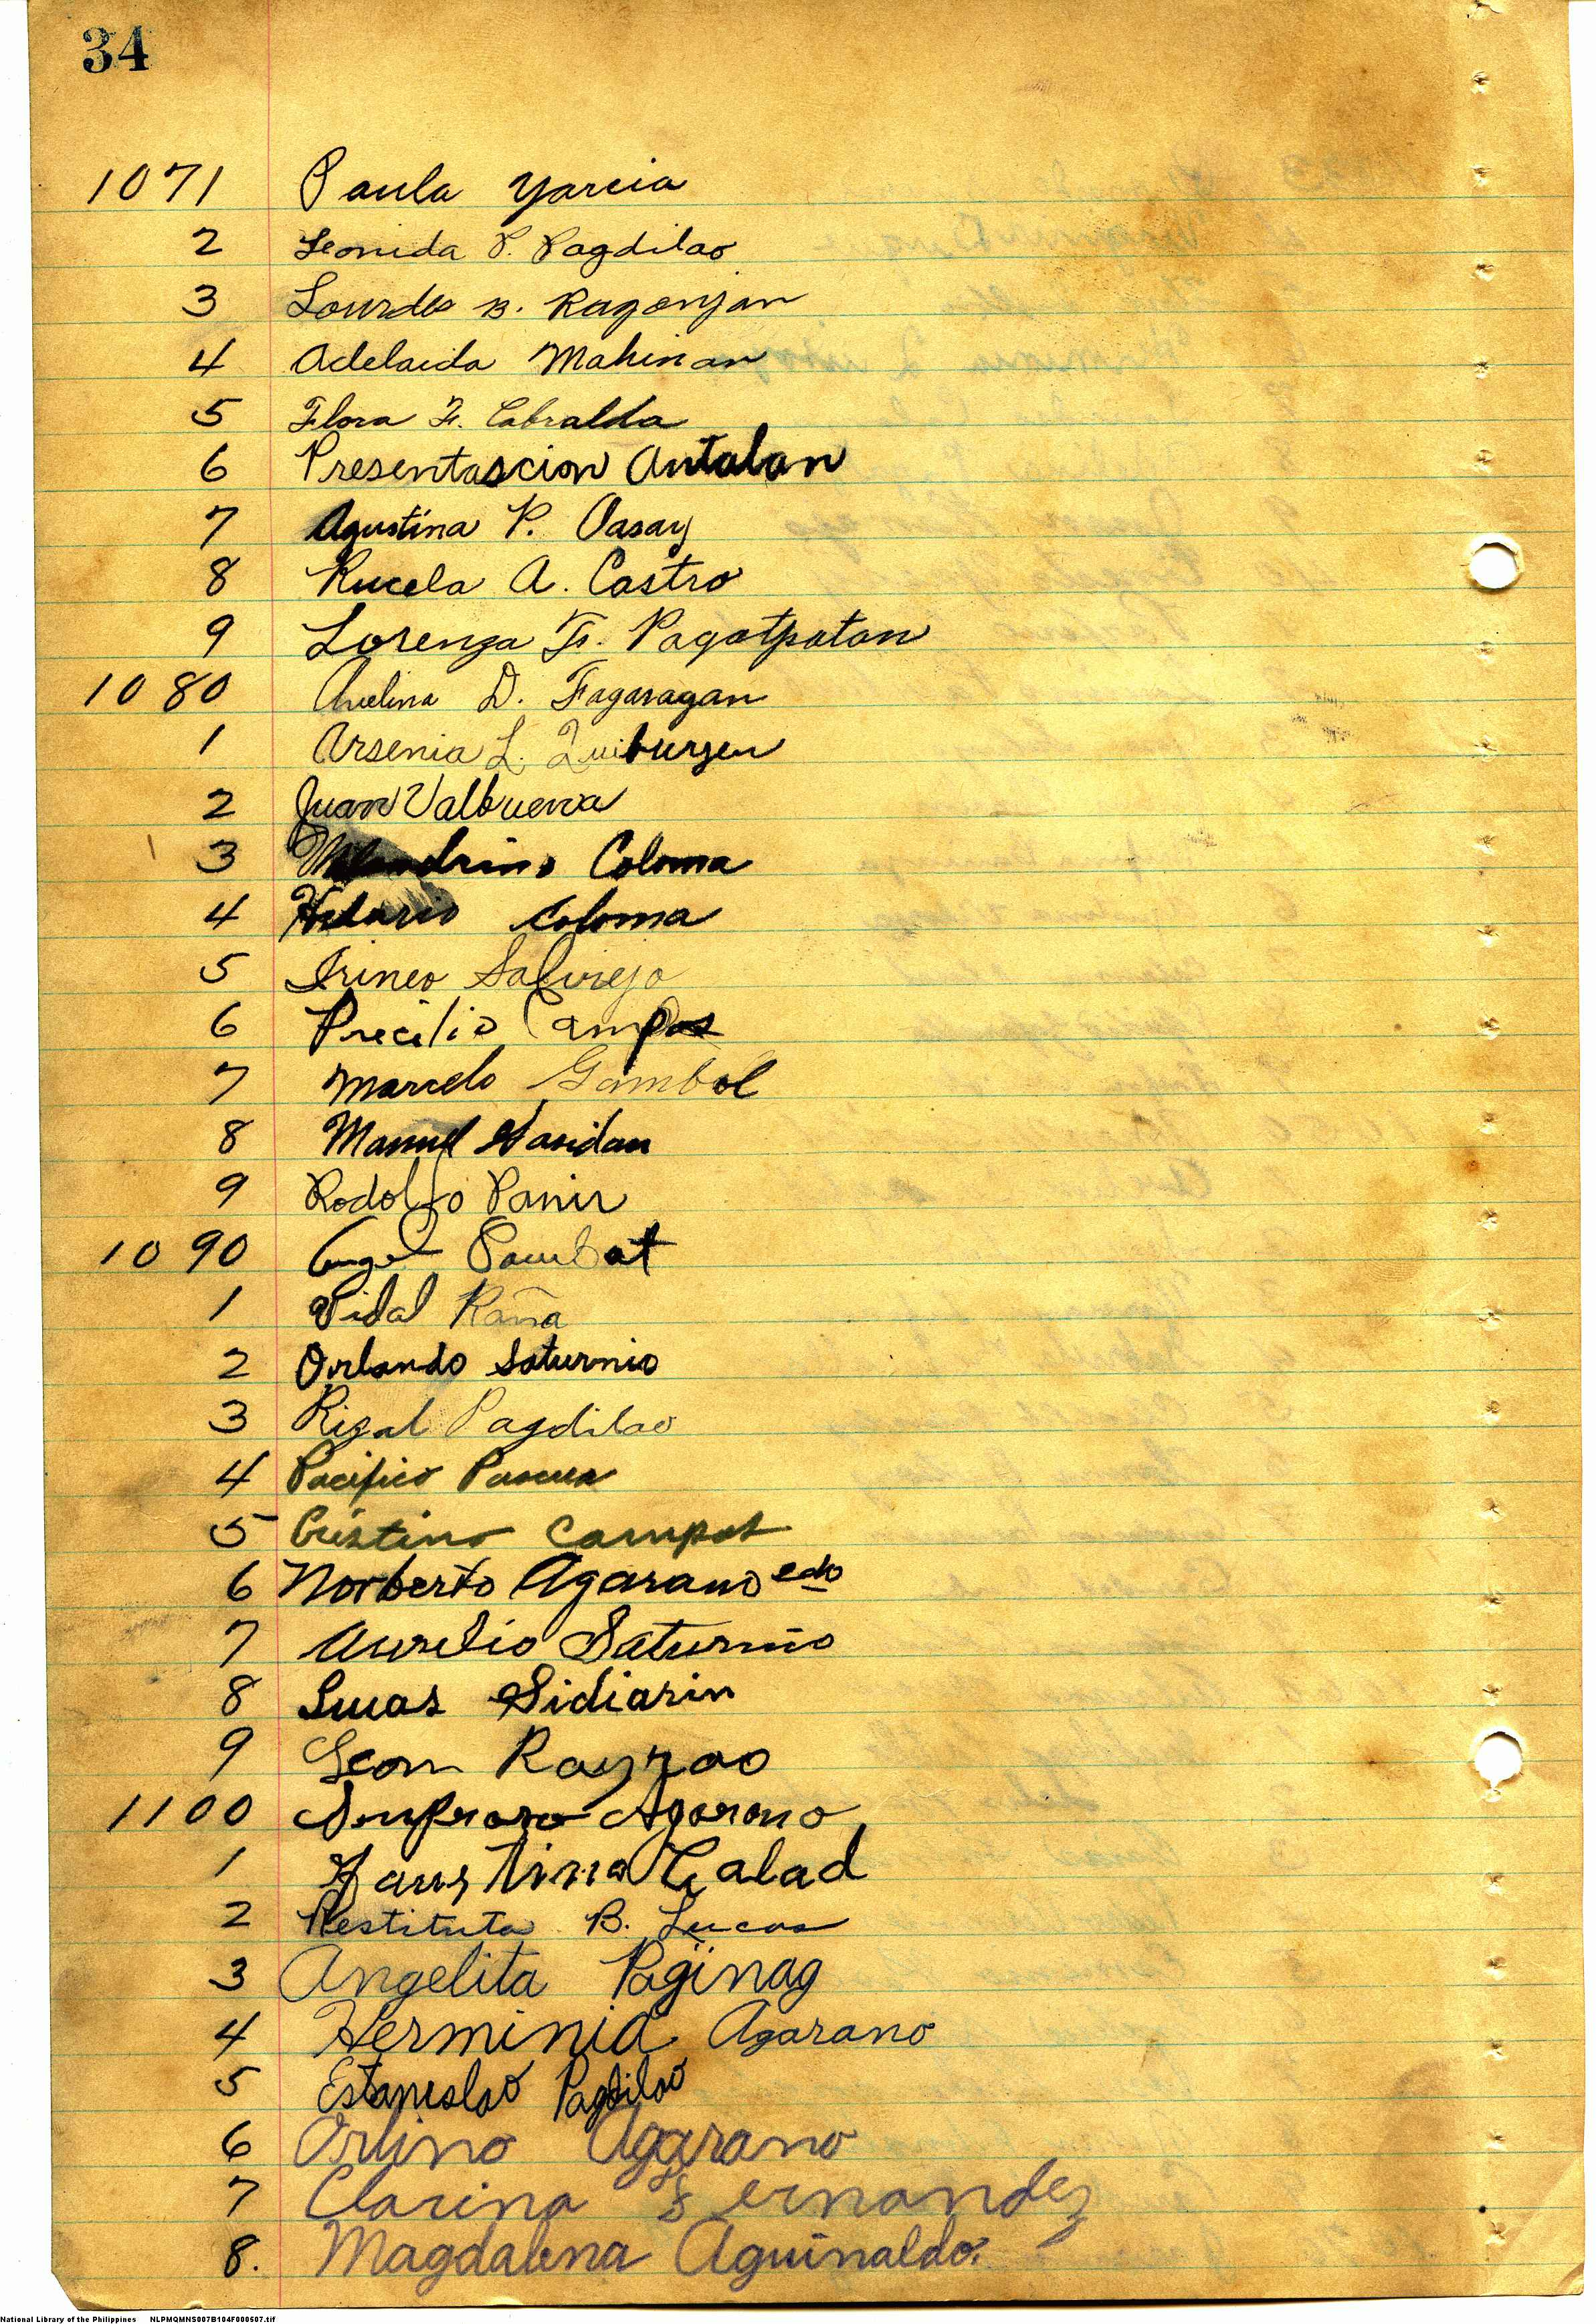 34
1071 Paula Garcia
2 Leonida P. Pagdilao
3 Lourdes B. Ragonjan
4 Adelaida Mahinan
5 Flora F. Cabralda
6 Presentascion Antalan
7 Agustina P. Oasay
8 Rucela A. Castro
9 Lorenza F. Pagatpatan
1080 Avelina D. Fagaragan
1 Arsenia L. Quibuyen
2 Juan Valbuena
3 Coloma
4 Hilario Coloma
5 Irineo Salviejo
6 Precilio Campos
7 Marcelo Gambol
8 Manuel
9 Rodolfo Panir
1090 Angel
1 Vidal Raña
2 Orlando Saturnio
3 Rizal Pagdilao
4 Pacifico Pascua
5 Cristino Campos
6 Norberto Agarano
7 Aurelio Saturnio
8 Lucas Sidiarin
9 Leon Rayrao
1100 Agarano
1 Faustina Calad
2 Restituta B. Lucas
3 Angelita Paginag
4 Herminia Agarano
5 Estanislao Pagdilao
6 Orlino Agarano
7 Clarina Fernandez
8. Magdalena Aguinaldo.
National Library of the Philippines NLPMQMNS007B104F000507.tif